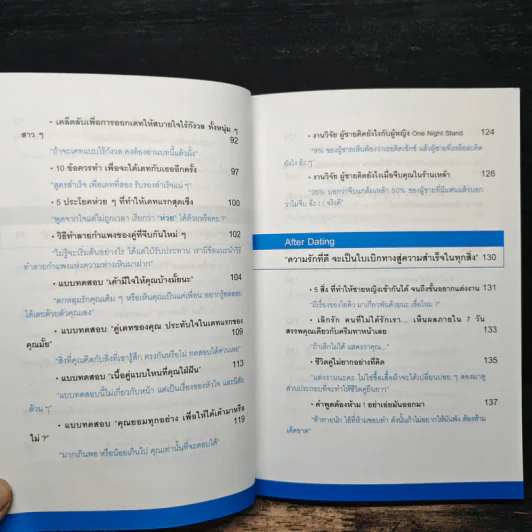 • เคล็ดลับเพื่อการออกเดทให้สบายใจไร้กังวล ทั้งหนุ่ม ๆ
สาว ๆ
92
"ถ้าจะเดทแบบไร้กังวล คงต้องอ่านบทนี้แล้วมั้ง"
• 10 ข้อควรทำ เพื่อจะได้เดทกับเธออีกครั้ง 97
"สูตรสำเร็จ เพื่อเดทที่สอง รับรองสำเร็จแน่ ๆ"
• 5 ประโยคห่วย ๆ ที่ทำให้เดทแรกสุดเซ็ง 100
"พูดจากใจแต่ไม่ถูกเวลา เรียกว่า "ห่วย" ได้ด้วยหรือคะ ?"
• วิธีทำลายกำแพงของคู่ที่จีบกันใหม่ ๆ 102
"ไม่รู้จะเริ่มต้นอย่างไร ได้แต่ไปรับประทาน เรามีข้อแนะนำวิธี
ทำลายกำแพงแห่งความห่างเหินมาฝาก"
• แบบทดสอบ "เค้ามีใจให้คุณบ้างมั้ยนะ" 104
"ตกหลุมรักคุณเต็ม ๆ หรือเห็นคุณเป็นแค่เพื่อน อยากรู้ทดสอบ
ได้เลยด้วยตัวคุณเอง"
• แบบทดสอบ "คู่เดทของคุณ ประทับใจในเดทแรกของ
คุณมั้ย"
109
"สิ่งที่คุณคิดกับสิ่งที่เขารู้สึก ตรงกันหรือไม่ ทดสอบได้ด่วนเลย"
• แบบทดสอบ "เนื้อคู่แบบไหนที่คุณใฝ่ฝัน" 113
"แบบทดสอบนี้ไม่เกี่ยวกับหน้า แต่เป็นเรื่องของหัวใจ และนิสัย
ล้วน ๆ"
• แบบทดสอบ "คุณยอมทุกอย่าง เพื่อให้ได้เค้ามาหรือ
ไม่ ?"
119
"มากเกินพอ หรือน้อยเกินไป คุณเท่านั้นที่จะตอบได้"
• งานวิจัย ผู้ชายคิดยังไงกับผู้หญิง One Night Stand 124
"9% ของผู้ชายเห็นพ้องว่าเธอคิดเซ็กซ์ แล้วผู้ชายที่เหลือล่ะคิด
ยังไง
• งานวิจัย ผู้ชายคิดยังไงเมื่อจีบคุณในร้านเหล้า 126
"35% บอกว่าจีบแก้มเหล้า 50% ของผู้ชายที่มีแฟนแล้วบอก
ว่าไม่จีบ
After Dating
"ความรักที่ดี จะเป็นใบเบิกทางสู่ความสำเร็จในทุกสิ่ง" 130
• 5 สิ่ง ที่ทำให้ชายหญิงเข้ากันได้ จนถึงขั้นอยากแต่งงาน
131
"มีเรื่องของไอคิว มาเกี่ยวพันด้วยนะ เชื่อไหม ?"
• เลิกรัก คนที่ไม่ได้รักเรา... เห็นผลภายใน 7 วัน
สรรพคุณเดียวกับครีมทาหน้าเลย 133
"ถ้าเลิกไม่ได้ แสดงว่าคุณ..."
• ชีวิตคู่ไม่ยากอย่างที่คิด 135
"แต่งงานนะคะ ไม่ใช่ซื้อเสื้อผ้าจะได้เปลี่ยนบ่อย ๆ ลองมาดู
ส่วนประกอบที่จะทำให้ชีวิตคู่ยืนยาว"
• คำพูดต้องห้าม ! อย่าเอ่ยมันออกมา 137
"ท้าทายนัก ใช้ที่ห้ามชอบทำ ดังนั้นถ้าไม่อยากให้มันพัง ต้องห้าม
เด็ดขาด"